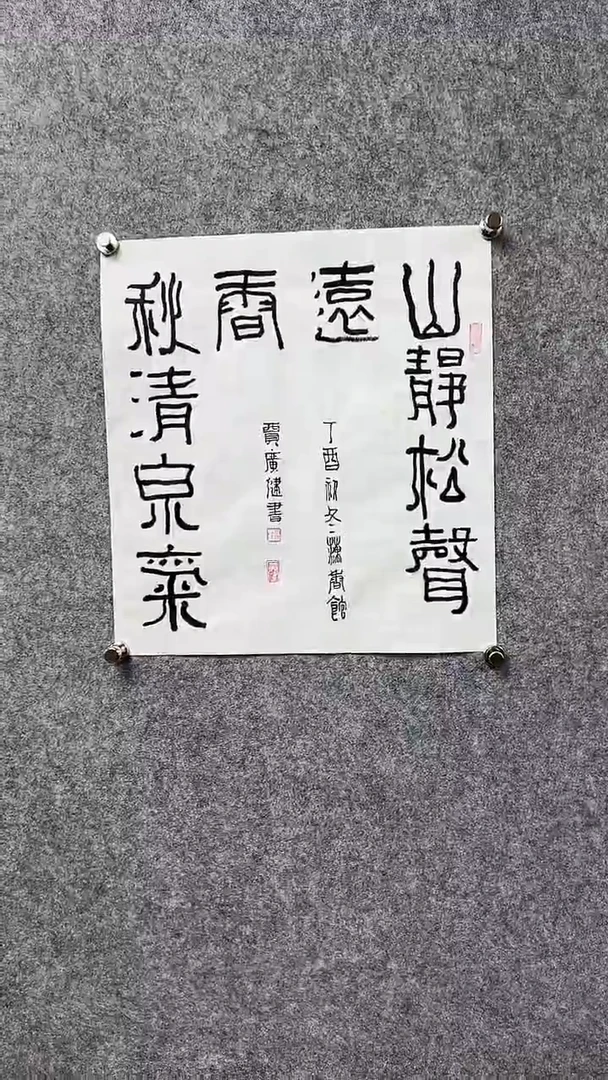 山靜松聲
遠
秋清泉氣
香
丁酉初冬藕香館
賈廣健書